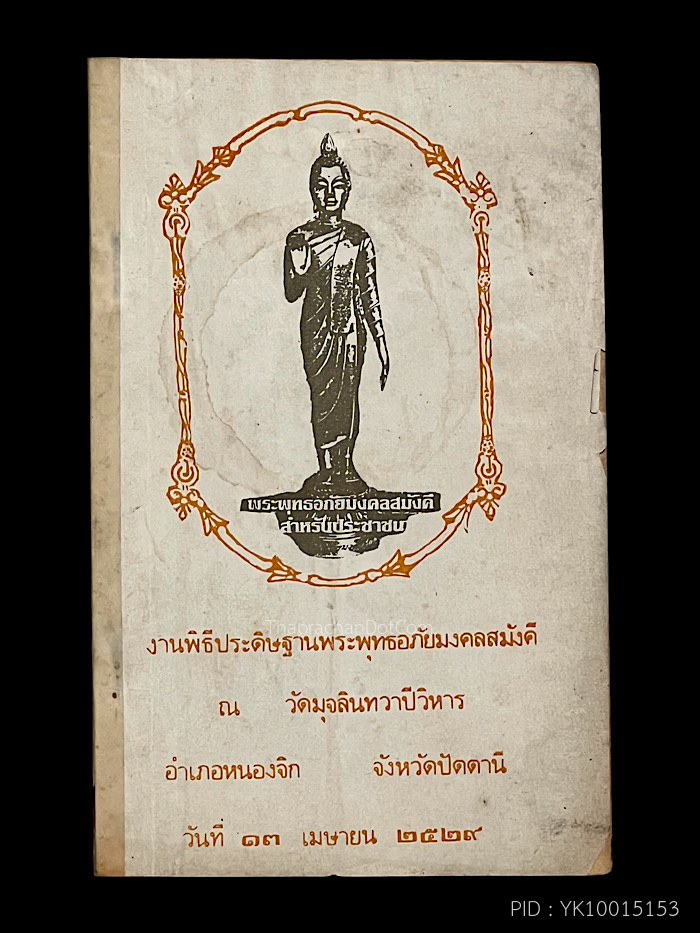 พระพุทธอภัยมงคลสมังคี
สำหรับประชาชน
ThaprachanDotCom
งานพิธีประดิษฐานพระพุทธอภัยมงคลสมังคี
ณ วัดมุจลินทวาปีวิหาร
อำเภอหนองจิก จังหวัดปัตตานี
วันที่ ๑๓ เมษายน ๒๕๒๙
PID : YK10015153